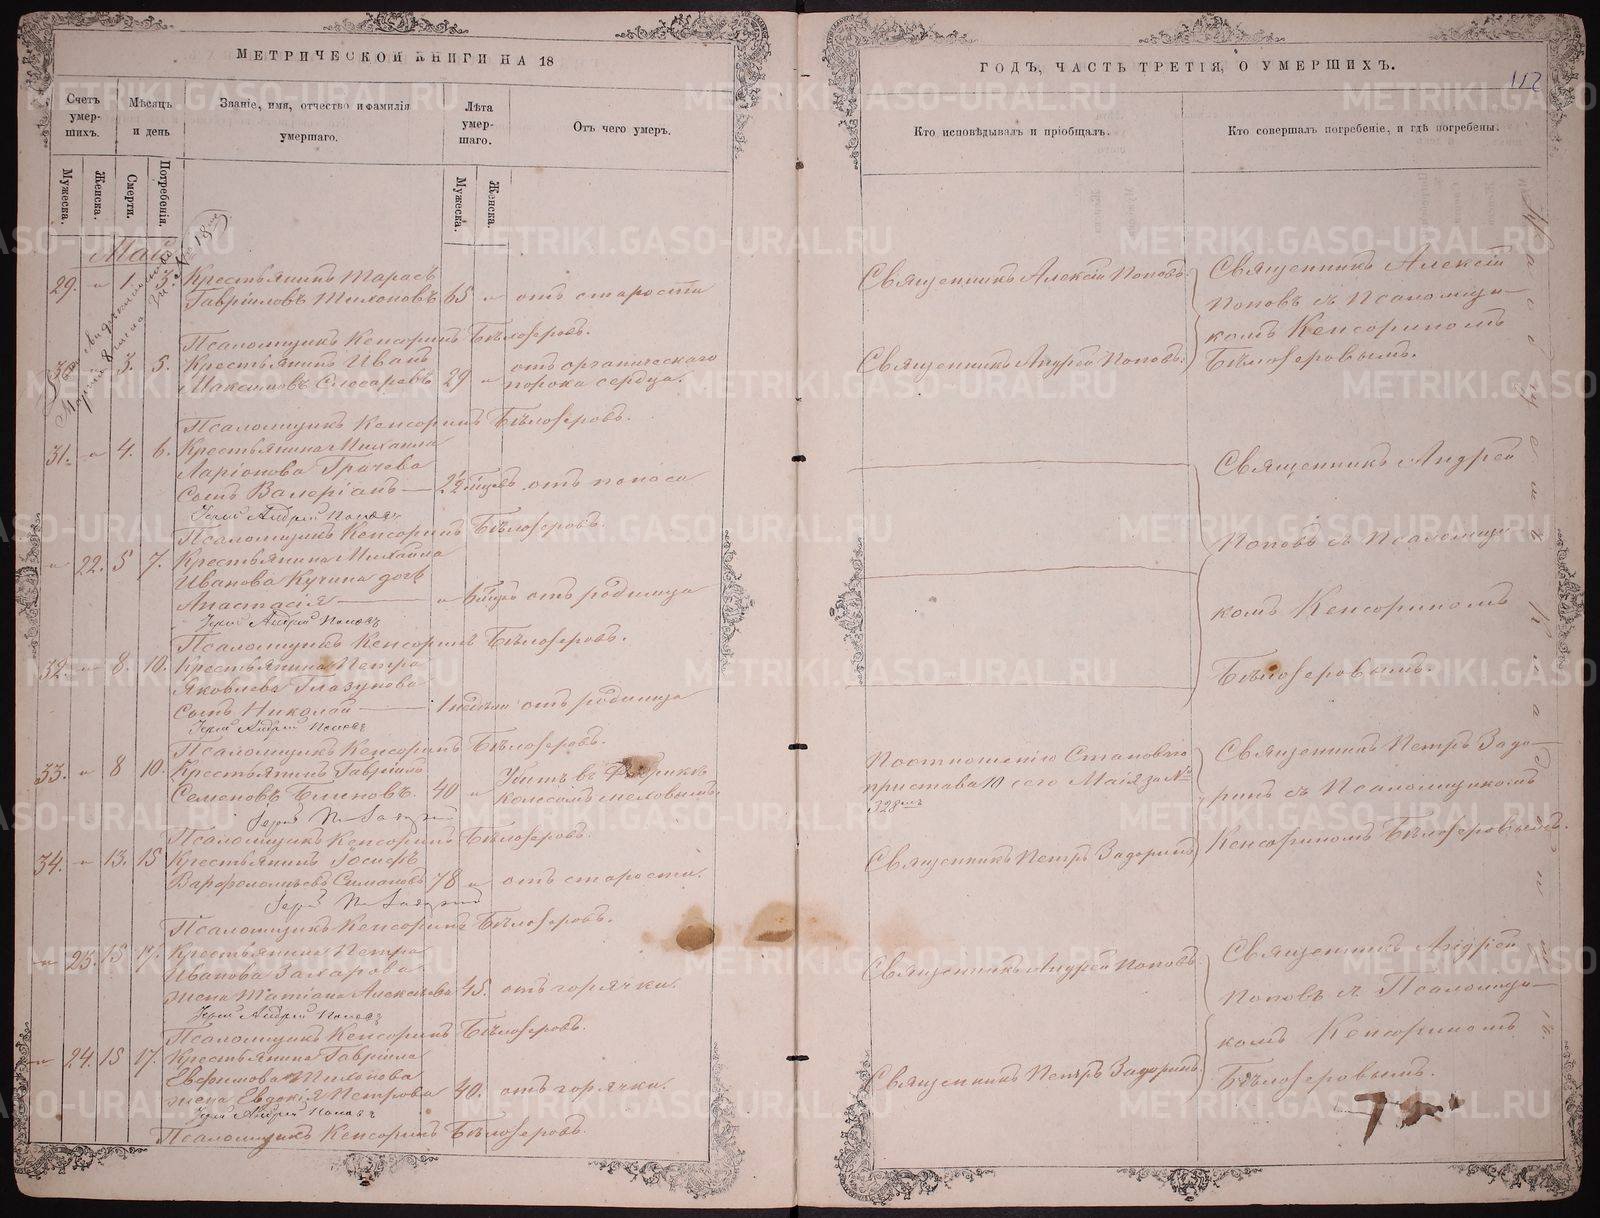 МЕТРИЧЕСКОЙ КНИГИ НА 18
Счетъ умер-шихъ.
Мѣсяцъ и день
Званіе, имя, отчество и фамилія умершаго.
Лѣта умер-шаго.
Отъ чего умеръ.
Мужеска.
Женска.
Смерти.
Погребенія.
Мужеска.
Женска.
Май
29. " 1. 3. Крестьянинъ Тарасъ
Гавріиловъ Тихоновъ 65 " отъ старости
Псаломщикъ Кенсоринъ Бѣлозеровъ.
30. 3. 5. Крестьянинъ Иванъ отъ органическаго
Максимовъ Слюсаревъ 29 " порока сердца.
Псаломщикъ Кенсоринъ Бѣлозеровъ.
31. " 4. 6. Крестьянина Михаила
Ларіонова Грачева
сынъ Валеріанъ — 2½ отъ поноса
Іерей Андрей Поповъ
Псаломщикъ Кенсоринъ Бѣлозеровъ.
" 22. 5 7. Крестьянина Михаила
Иванова Кучина дочь
Анастасія — " отъ родимца
Іерей Андрей Поповъ
Псаломщикъ Кенсоринъ Бѣлозеровъ.
32. " 8. 10. Крестьянина Петра
Яковлева Глазунова
сынъ Николай — 1 недѣли отъ родимца
Іерей Андрей Поповъ
Псаломщикъ Кенсоринъ Бѣлозеровъ.
33. " 8 10. Крестьянинъ Гавріилъ Убитъ въ Фабрикѣ
Семеновъ Блиновъ. 40 " колесомъ мѣховымъ.
Іерей П. Задоринъ
Псаломщикъ Кенсоринъ Бѣлозеровъ.
34. " 13. 15 Крестьянинъ Іосифъ
Варфоломѣевъ Симановъ 78 " отъ старости.
Іерей П. Задоринъ
Псаломщикъ Кенсоринъ Бѣлозеровъ.
" 23. 15 17. Крестьянина Петра
Иванова Захарова
жена Татіана Алексѣева 45. отъ горячки.
Іерей Андрей Поповъ
Псаломщикъ Кенсоринъ Бѣлозеровъ.
" 24. 15 17. Крестьянина Гавріила
Евфимова Тихонова
жена Евдокія Петрова 40. отъ горячки.
Іерей Андрей Поповъ
Псаломщикъ Кенсоринъ Бѣлозеровъ.
ГОДЪ, ЧАСТЬ ТРЕТІЯ, О УМЕРШИХЪ.
112
Кто исповѣдывалъ и пріобщалъ.
Кто совершалъ погребеніе, и гдѣ погребены.
Священникъ Алексій Поповъ.
Священникъ Андрей Поповъ.
По отношенію Становаго
пристава 10 сего Маія за №
328мъ
Священникъ Петръ Задоринъ
Священникъ Андрей Поповъ
Священникъ Петръ Задоринъ.
Священникъ Алексій
Поповъ съ Псаломщи-
комъ Кенсориномъ
Бѣлозеровымъ.
Священникъ Андрей
Поповъ съ Псаломщи
комъ Кенсориномъ
Бѣлозеровымъ.
Священникъ Петръ Задо-
ринъ съ Псаломщикомъ
Кенсориномъ Бѣлозеровымъ.
Священникъ Андрей
Поповъ съ Псаломщи-
комъ Кенсориномъ
Бѣлозеровымъ.
METRIKI.GASO-URAL.RU